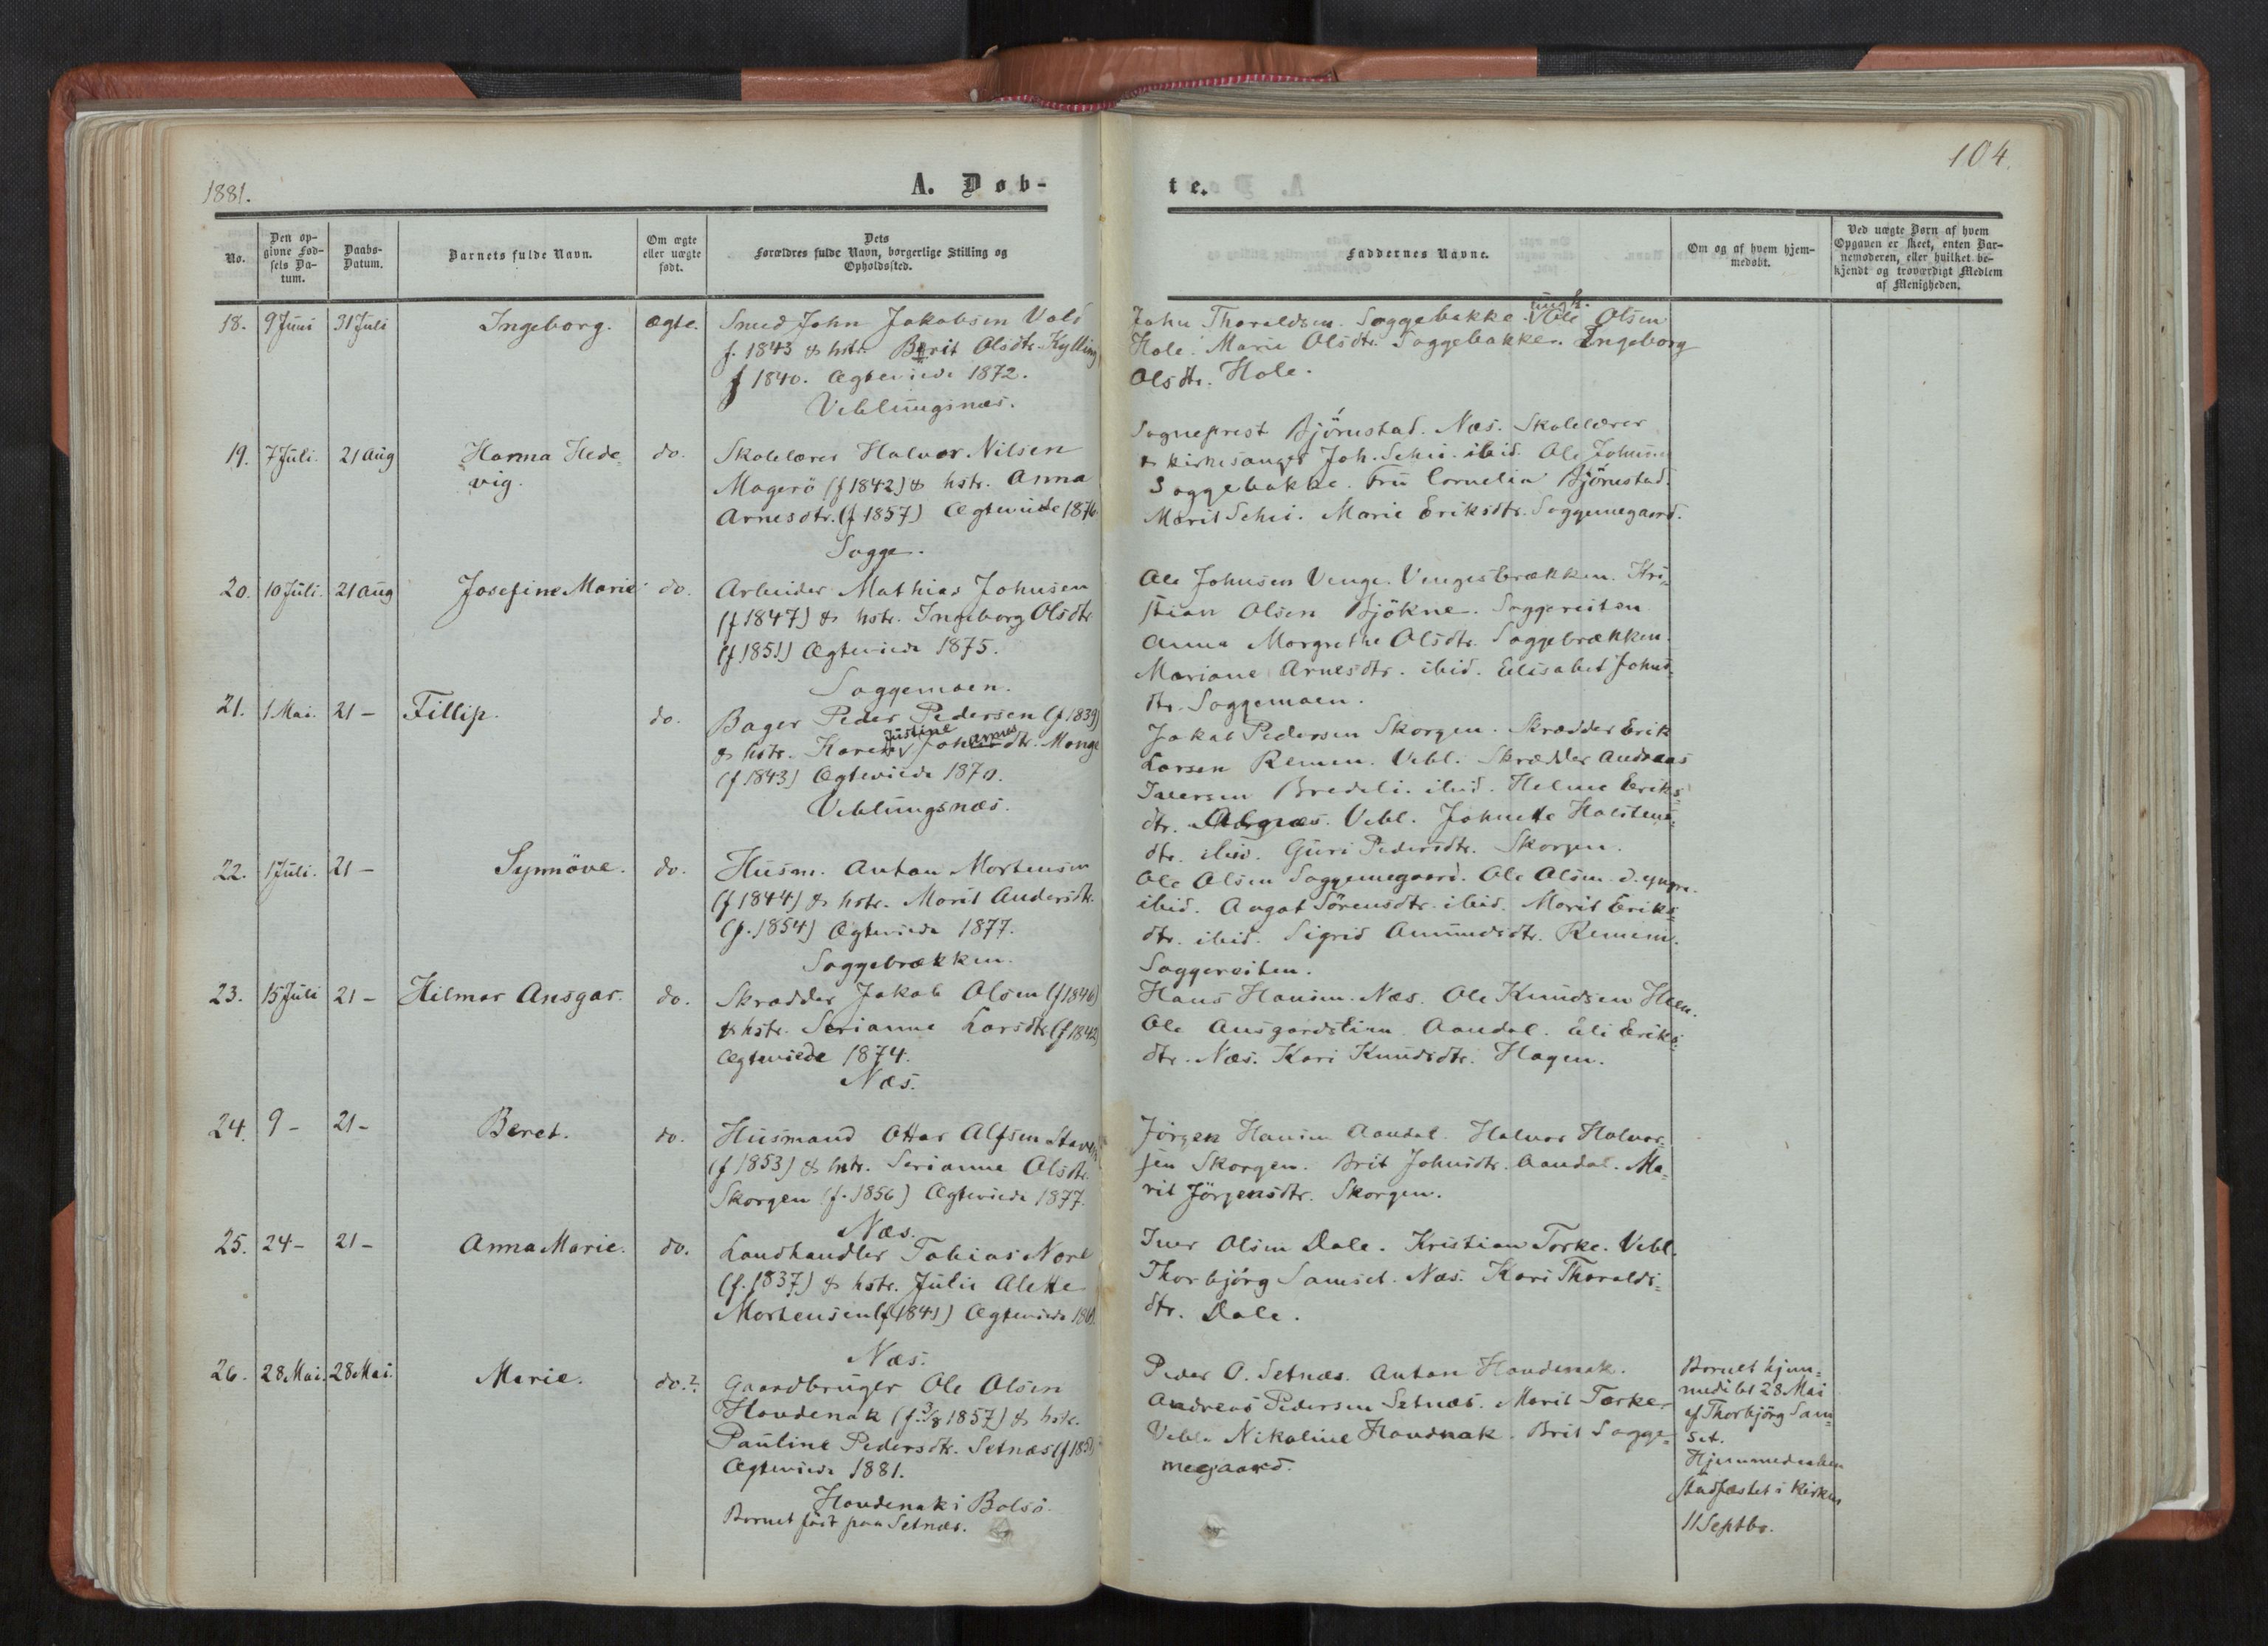 1881.
A. Døb-
No.
Den op-
givne Fød-
sels Da-
tum.
Daabs-
Datum.
Barnets fulde Navn.
Om ægte
eller uægte
født.
Dets
Forældres fulde Navn, borgerlige Stilling og
Opholdssted.
18. 9 Juni 31 Juli Ingeborg. ægte. Smed John Jakobsen Vold
f. 1843 & hstr. Berit Olsdtr. Kylling
f 1840. Ægteviede 1872.
Veblungsnæs.
19. 7 Juli. 21 Aug Hanna Hede-
vig. do. Skolelærer Halvor Nilsen
Magerö (f 1842) & hstr. Anna
Arnesdtr. (f 1857) Ægteviede 1876
Sogge.
20. 10 Juli. 21 Aug Josefine Marie do. Arbeider Mathias Johnsen
(f 1847) & hstr. Ingeborg Olsdtr
(f 1851) Ægteviede 1875.
Soggemoen.
21. 1 Mai. 21 - Fillip. do. Bager Peder Pedersen (f 1839)
& hstr. Karen Justine Johannesdtr. Monge
(f 1843) Ægteviede 1870.
Veblungsnæs.
22. 1 Juli. 21 - Synnöve. do. Husm. Anton Mortensen
(f 1844) & hstr. Marit Andersdtr.
(f. 1854) Ægteviede 1877.
Soggebrækken.
23. 15 Juli 21 - Hilmar Ansgar. do. Skrædder Jakob Olsen (f 1846)
& hstr. Serianne Larsdtr. (f 1842)
Ægteviede 1874.
Næs.
24. 9 - 21 - Beret. do. Husmand Ottar Alfsen
(f 1853) & hstr. Serianne Olsdtr.
Skorgen (f. 1856) Ægteviede 1877.
Næs.
25. 24 - 21 - Anna Marie. do. Landhandler Tobias
(f. 1837) & hstr. Julie Alette
Mortensen (f 1841) Ægteviede
Næs.
26. 28 Mai. 28 Mai. Marie. do.? Gaardbruger Ole Olsen
Hovdenak (f. 3/8 1857) & hstr.
Pauline Pedersdtr. Setnæs
Ægteviede 1881.
Hovdenak i Bolsö.
Barnet født paa Setnæs.
104.
te.
Faddernes Navne.
Om og af hvem hjem-
medøbt.
Ved uægte Børn af hvem
Opgaven er skeet, enten Bar-
nemoderen, eller hvilket be-
kjendt og troværdigt Medlem
af Menigheden.
John Tharaldsen Soggebakke. ungk. Ole Olsen
Hole. Marie Olsdtr. Soggebakke. Ingeborg
Olsdtr. Hole.
Sogneprest Björnstad. Næs. Skolelærer
& Kirkesanger Joh. Schei. ibid. Ole Johnsen
Soggebakke. Fru Cornelia Björnstad.
Marit Schei. Marie Eriksdtr. Soggemegaard.
Ole Johnsen Venge. Vengesbrækken. Kri-
stian Olsen Bjökne. Soggereiten
Anna Margrethe Olsdtr. Soggebrækken.
Mariane Arnesdtr. ibid. Elisabet Johns-
dtr. Soggemoen.
Jakob Pedersen Skorgen. Skrædder Erik
Larsen Remen. Vebl. Skrædder Andreas
Iversen Bredeli. ibid. Heline Eriks-
dtr. Vebl. Johnette Halstens-
dtr. ibid. Guri Pedersdtr. Skorgen.
Ole Olsen Soggemegaard. Ole Olsen d. yngre.
ibid. Aagot Sörensdtr. ibid. Marit Eriks-
dtr. ibid. Sigrid Amundsdtr. Remem.
Soggereiten.
Hans Hansen. Næs. Ole Knudsen Heen.
Ole Ansgardstien. Aandal. Eli Eriks-
dtr. Næs. Kari Knudsdtr. Hagen.
Jörgen Hansen Aandal. Halvor Halvor-
sen Skorgen. Brit Johnsdtr. Aandal. Ma-
rit Jörgensdtr. Skorgen.
Iver Olsen Dale. Kristian Torke. Vebl.
Thorbjörg Samset. Næs. Kari Tharalds-
dtr. Dale.
Peder O. Setnæs. Anton Hovdenak.
Andreas Pedersen Setnæs. Marit Torke.
Vebl. Nikoline Hovdnak. Brit Sogge-
megaard.
Barnet hjem-
medöbt 28 Mai
af Thorbjörg Sam-
set.
Hjemmedaaben
stadfæstet i Kirken
11 Septbr.